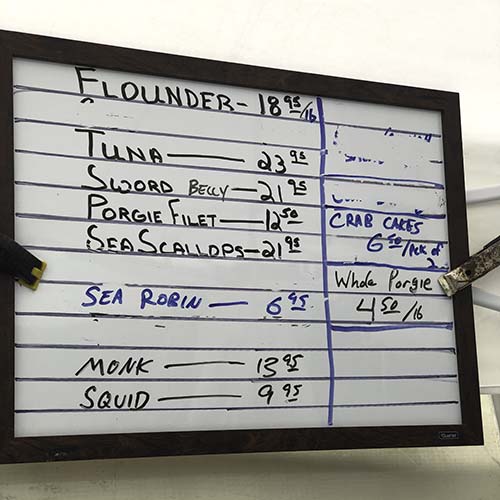 FLOUNDER - 18 95/lb
TUNA — 23 95
SWORD BELLY - 21 95
PORGIE FILET — 12 50
SEA SCALLOPS - 21 95
SEA ROBIN — 6 95
MONK — 13 95
SQUID — 9 95
CRAB CAKES
6 50/PCK of
2
Whole Porgie
4 50/lb
Quartet